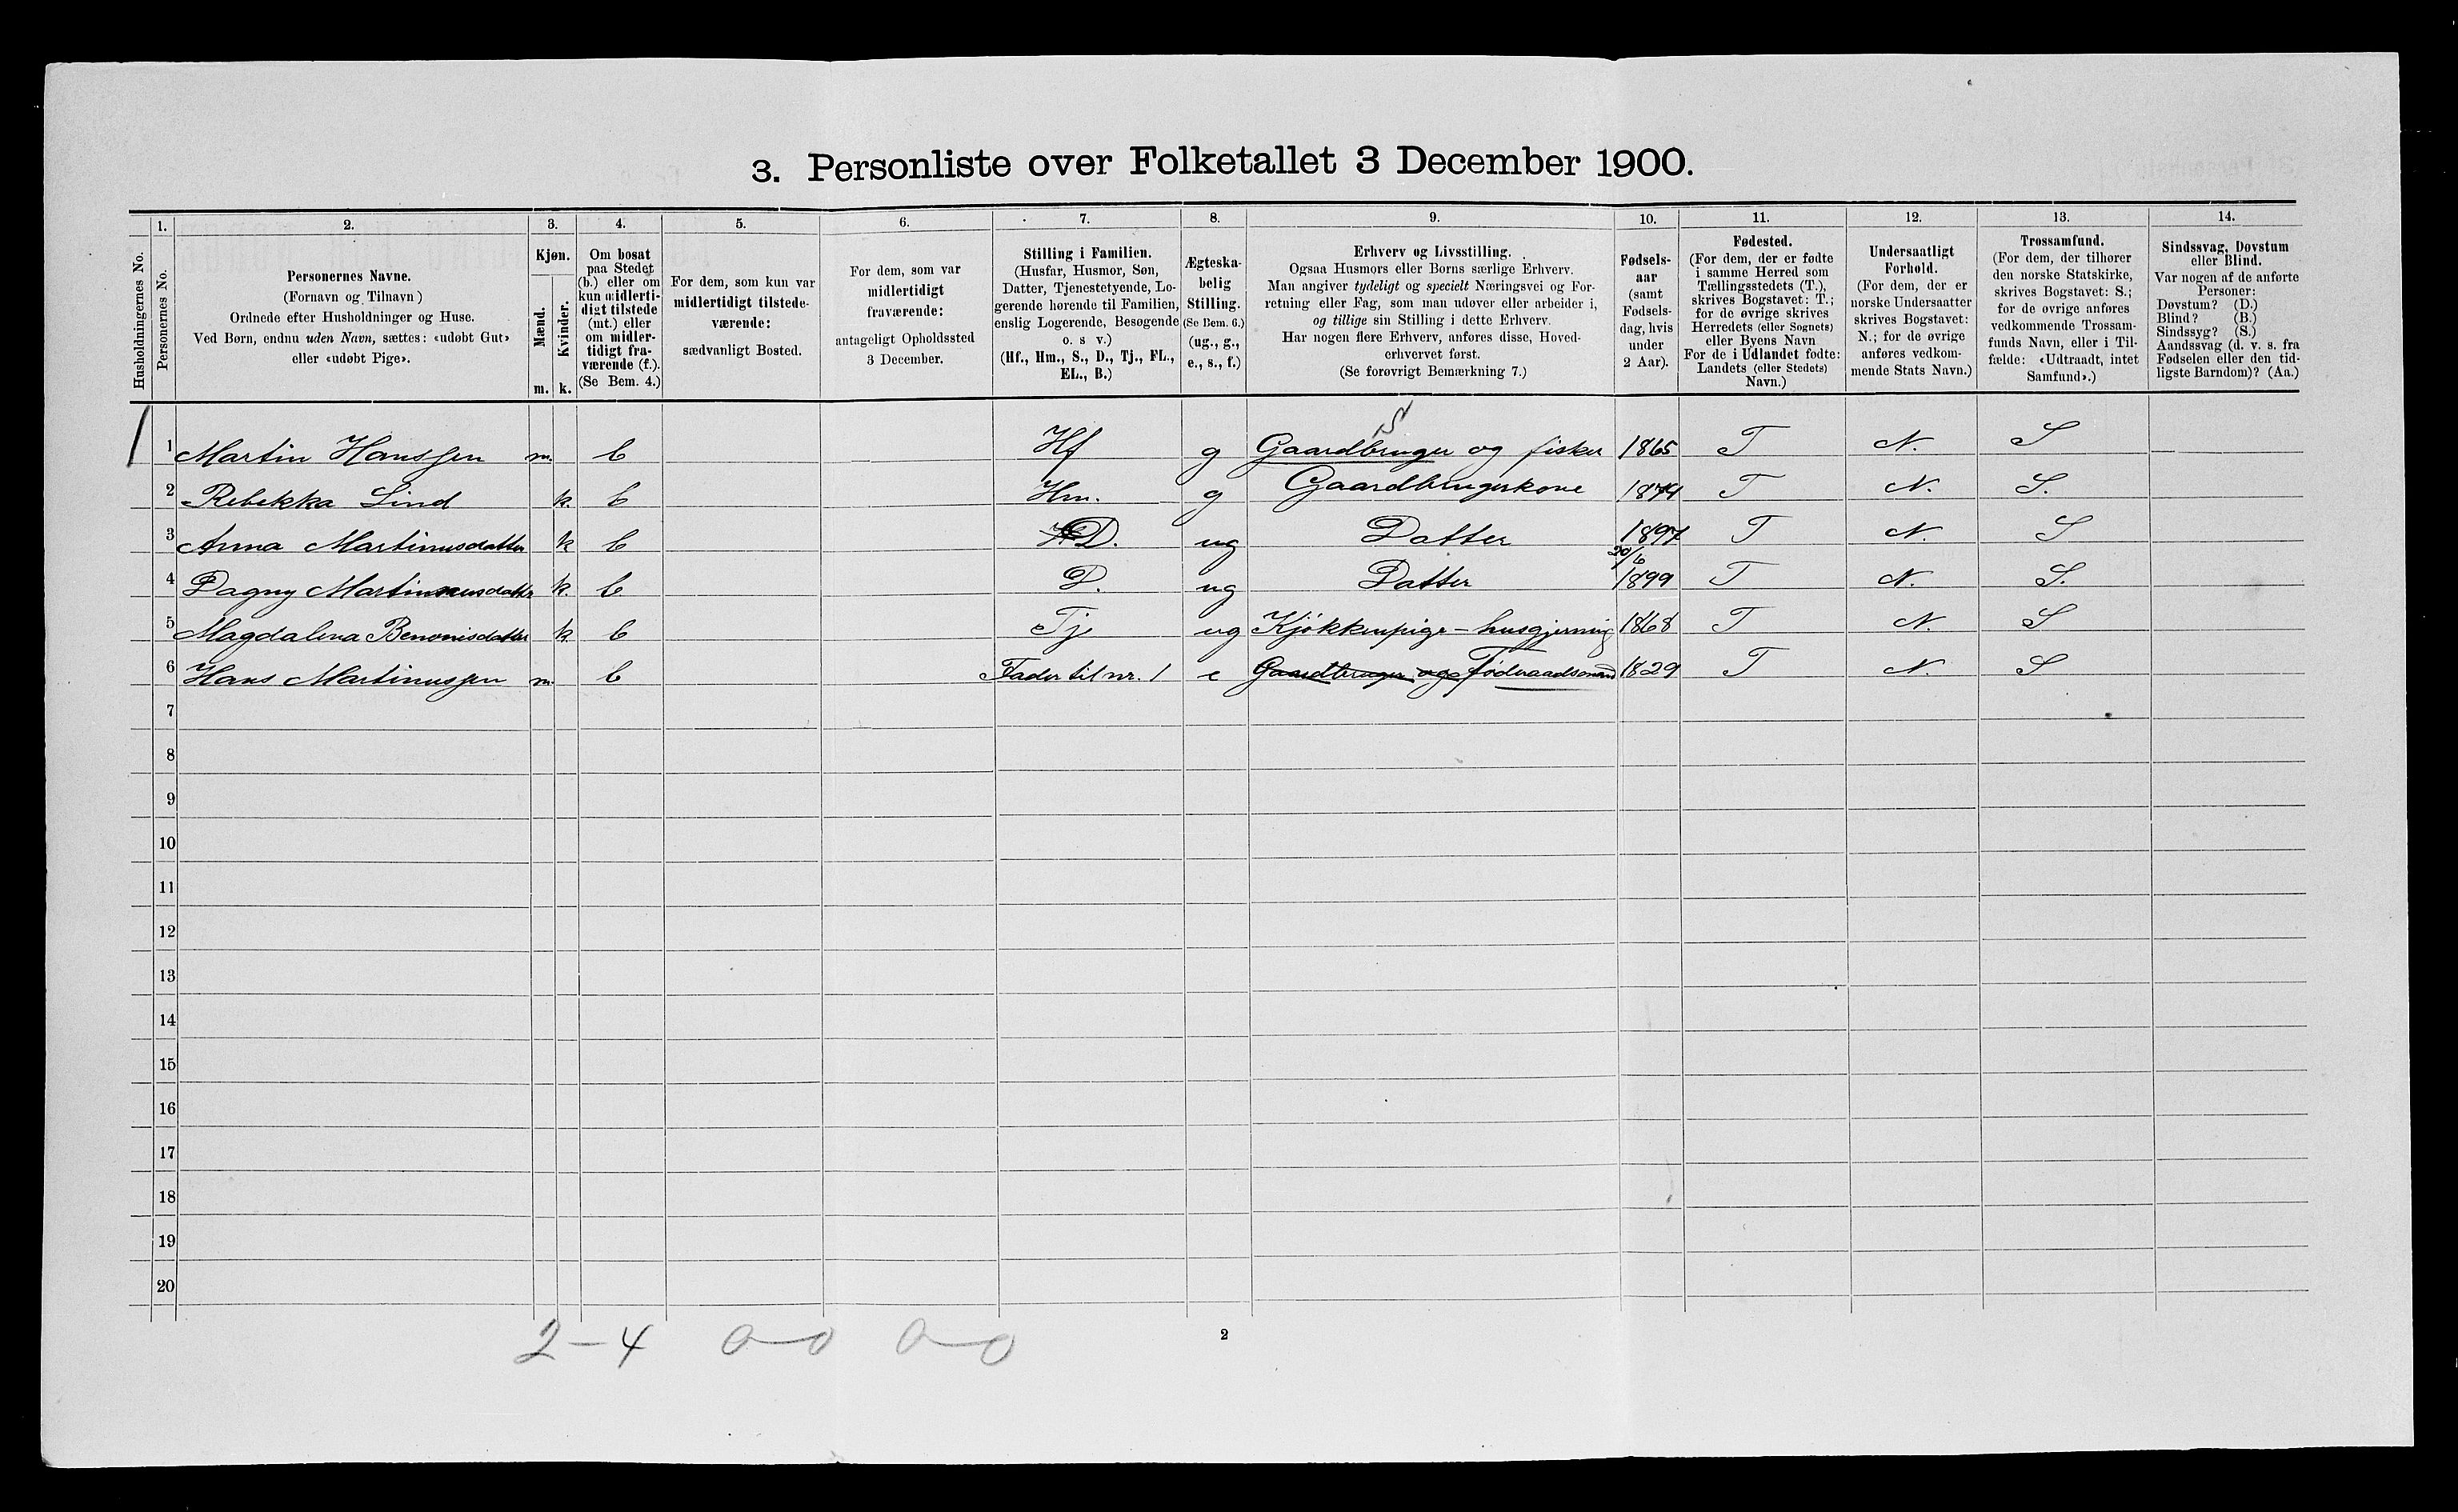 3. Personliste over Folketallet 3 December 1900.
Husholdningernes No.
1.
Personernes No.
2.
Personernes Navne.
(Fornavn og Tilnavn)
Ordnede efter Husholdninger og Huse.
Ved Børn, endnu uden Navn, sættes: «udøbt Gut»
eller «udøbt Pige».
3.
Kjøn.
Mænd.
Kvinder.
m. k.
4.
Om bosat
paa Stedet
(b.) eller om
kun midlerti-
digt tilstede
(mt.) eller
om midler-
tidigt fra-
værende (f.).
(Se Bem. 4.)
5.
For dem, som kun var
midlertidigt tilstede-
værende:
sædvanligt Bosted.
6.
For dem, som var
midlertidigt
fraværende:
antageligt Opholdssted
3 December.
7.
Stilling i Familien.
(Husfar, Husmor, Søn,
Datter, Tjenestetyende, Lo-
gerende hørende til Familien,
enslig Logerende, Besøgende
o. s v.)
(Hf., Hm., S., D., Tj., FL.,
EL., B.)
8.
Ægteska-
belig
Stilling.
(Se Bem. 6.)
(ug., g.,
e., s., f.)
9.
Erhverv og Livsstilling.
Ogsaa Husmors eller Børns særlige Erhverv.
Man angiver tydeligt og specielt Næringsvei og For-
retning eller Fag, som man udøver eller arbeider i,
og tillige sin Stilling i dette Erhverv.
Har nogen flere Erhverv, anføres disse, Hoved-
erhvervet først.
(Se forøvrigt Bemærkning 7.)
10.
Fødsels-
aar
(samt
Fødsels-
dag, hvis
under
2 Aar).
11.
Fødested.
(For dem, der er fødte
i samme Herred som
Tællingsstedets (T.),
skrives Bogstavet: T.;
for de øvrige skrives
Herredets (eller Sognets)
eller Byens Navn
For de i Udlandet fødte:
Landets (eller Stedets)
Navn.)
12.
Undersaatligt
Forhold.
(For dem, der er
norske Undersaatter
skrives Bogstavet:
N.; for de øvrige
anføres vedkom-
mende Stats Navn.)
13.
Trossamfund.
(For dem, der tilhører
den norske Statskirke,
skrives Bogstavet: S.;
for de øvrige anføres
vedkommende Trossam-
funds Navn, eller i Til-
fælde: «Udtraadt, intet
Samfund».)
14.
Sindssvag, Døvstum
eller Blind.
Var nogen af de anførte
Personer:
Døvstum? (D.)
Blind? (B.)
Sindssyg? (S.)
Aandssvag (d. v. s. fra
Fødselen eller den tid-
ligste Barndom)? (Aa.)
1 1 Martin Hanssen m. b Hf g Gaardbruger og fisker 1865 T N. S
2 Rebekka Lind k. b Hm. g Gaardbrugerkone 1874 T N. S.
3 Anna Martinusdatter k b D. ug Datter 1897 T N. S
4 Dagny Martinusdatter k. b D. ug Datter 20/6 1899 T N. S.
5 Magdalena Benonisdatter k b Tj ug Kjøkkenpige - husgjerning 1868 T N. S
6 Hans Martinussen m. b Fader til nr. 1 e Gaardbruger og Føderaadsmand 1829 T N. S
7
8
9
10
11
12
13
14
15
16
17
18
19
20
2-4 0-0 0-0
2